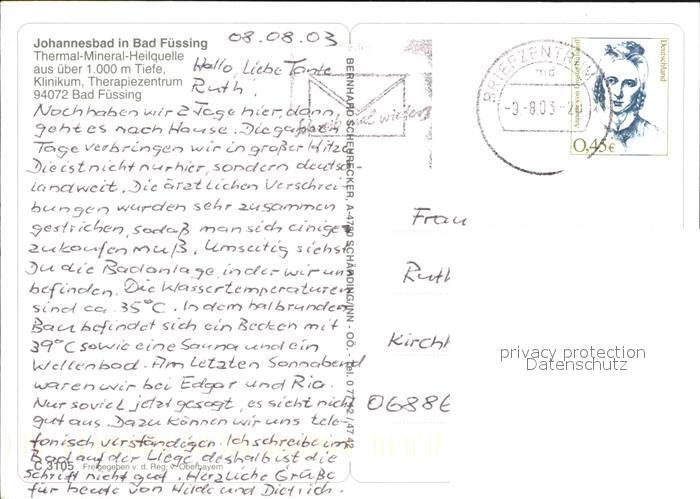 08.08.03
Johannesbad in Bad Füssing
Thermal-Mineral-Heilquelle
aus über 1.000 m Tiefe,
Klinikum, Therapiezentrum
94072 Bad Füssing
Hallo, Liebe Tante
Ruth.
Noch haben wir 2 Tage hier, dann
geht es nach Hause. Die ganzen
Tage verbringen wir in großer Hitze.
Die ist nicht nur hier, sondern deutsch
landweit. Die ärztlichen Verschrei-
bungen wurden sehr zusammen
gestrichen, sodaß man sich einiges
zukaufen muß. Umseitig siehst
Du die Badanlage, in der wir uns
befinden. Die Wassertemperaturen
sind ca. 35°C. In dem halbrunden
Bau befindet sich ein Becken mit
39°C sowie eine Sauna und ein
Wellenbad. Am Letzten Sonnabend
waren wir bei Edgar und Ria.
Nur soviel jetzt gesagt, es sieht nicht
gut aus. Dazu können wir uns tele-
fonisch verständigen. Ich schreibe im
Bad auf der Liege deshalb ist die
Schrift nicht gut. Herzliche Grüße
für heute von Hilde und Dietrich.
C 3105 Freigegeben v. d. Reg. v. Oberbayern
BERNHARD SCHERRECKER, A-4780 SCHÄRDING/INN - OÖ.
mal wieder
BRIEFZENTRUM
md
-9.-8.03-2
Deutschland
0,45€
Frau
Ruth
Kirchl
06886
privacy protection
Datenschutz